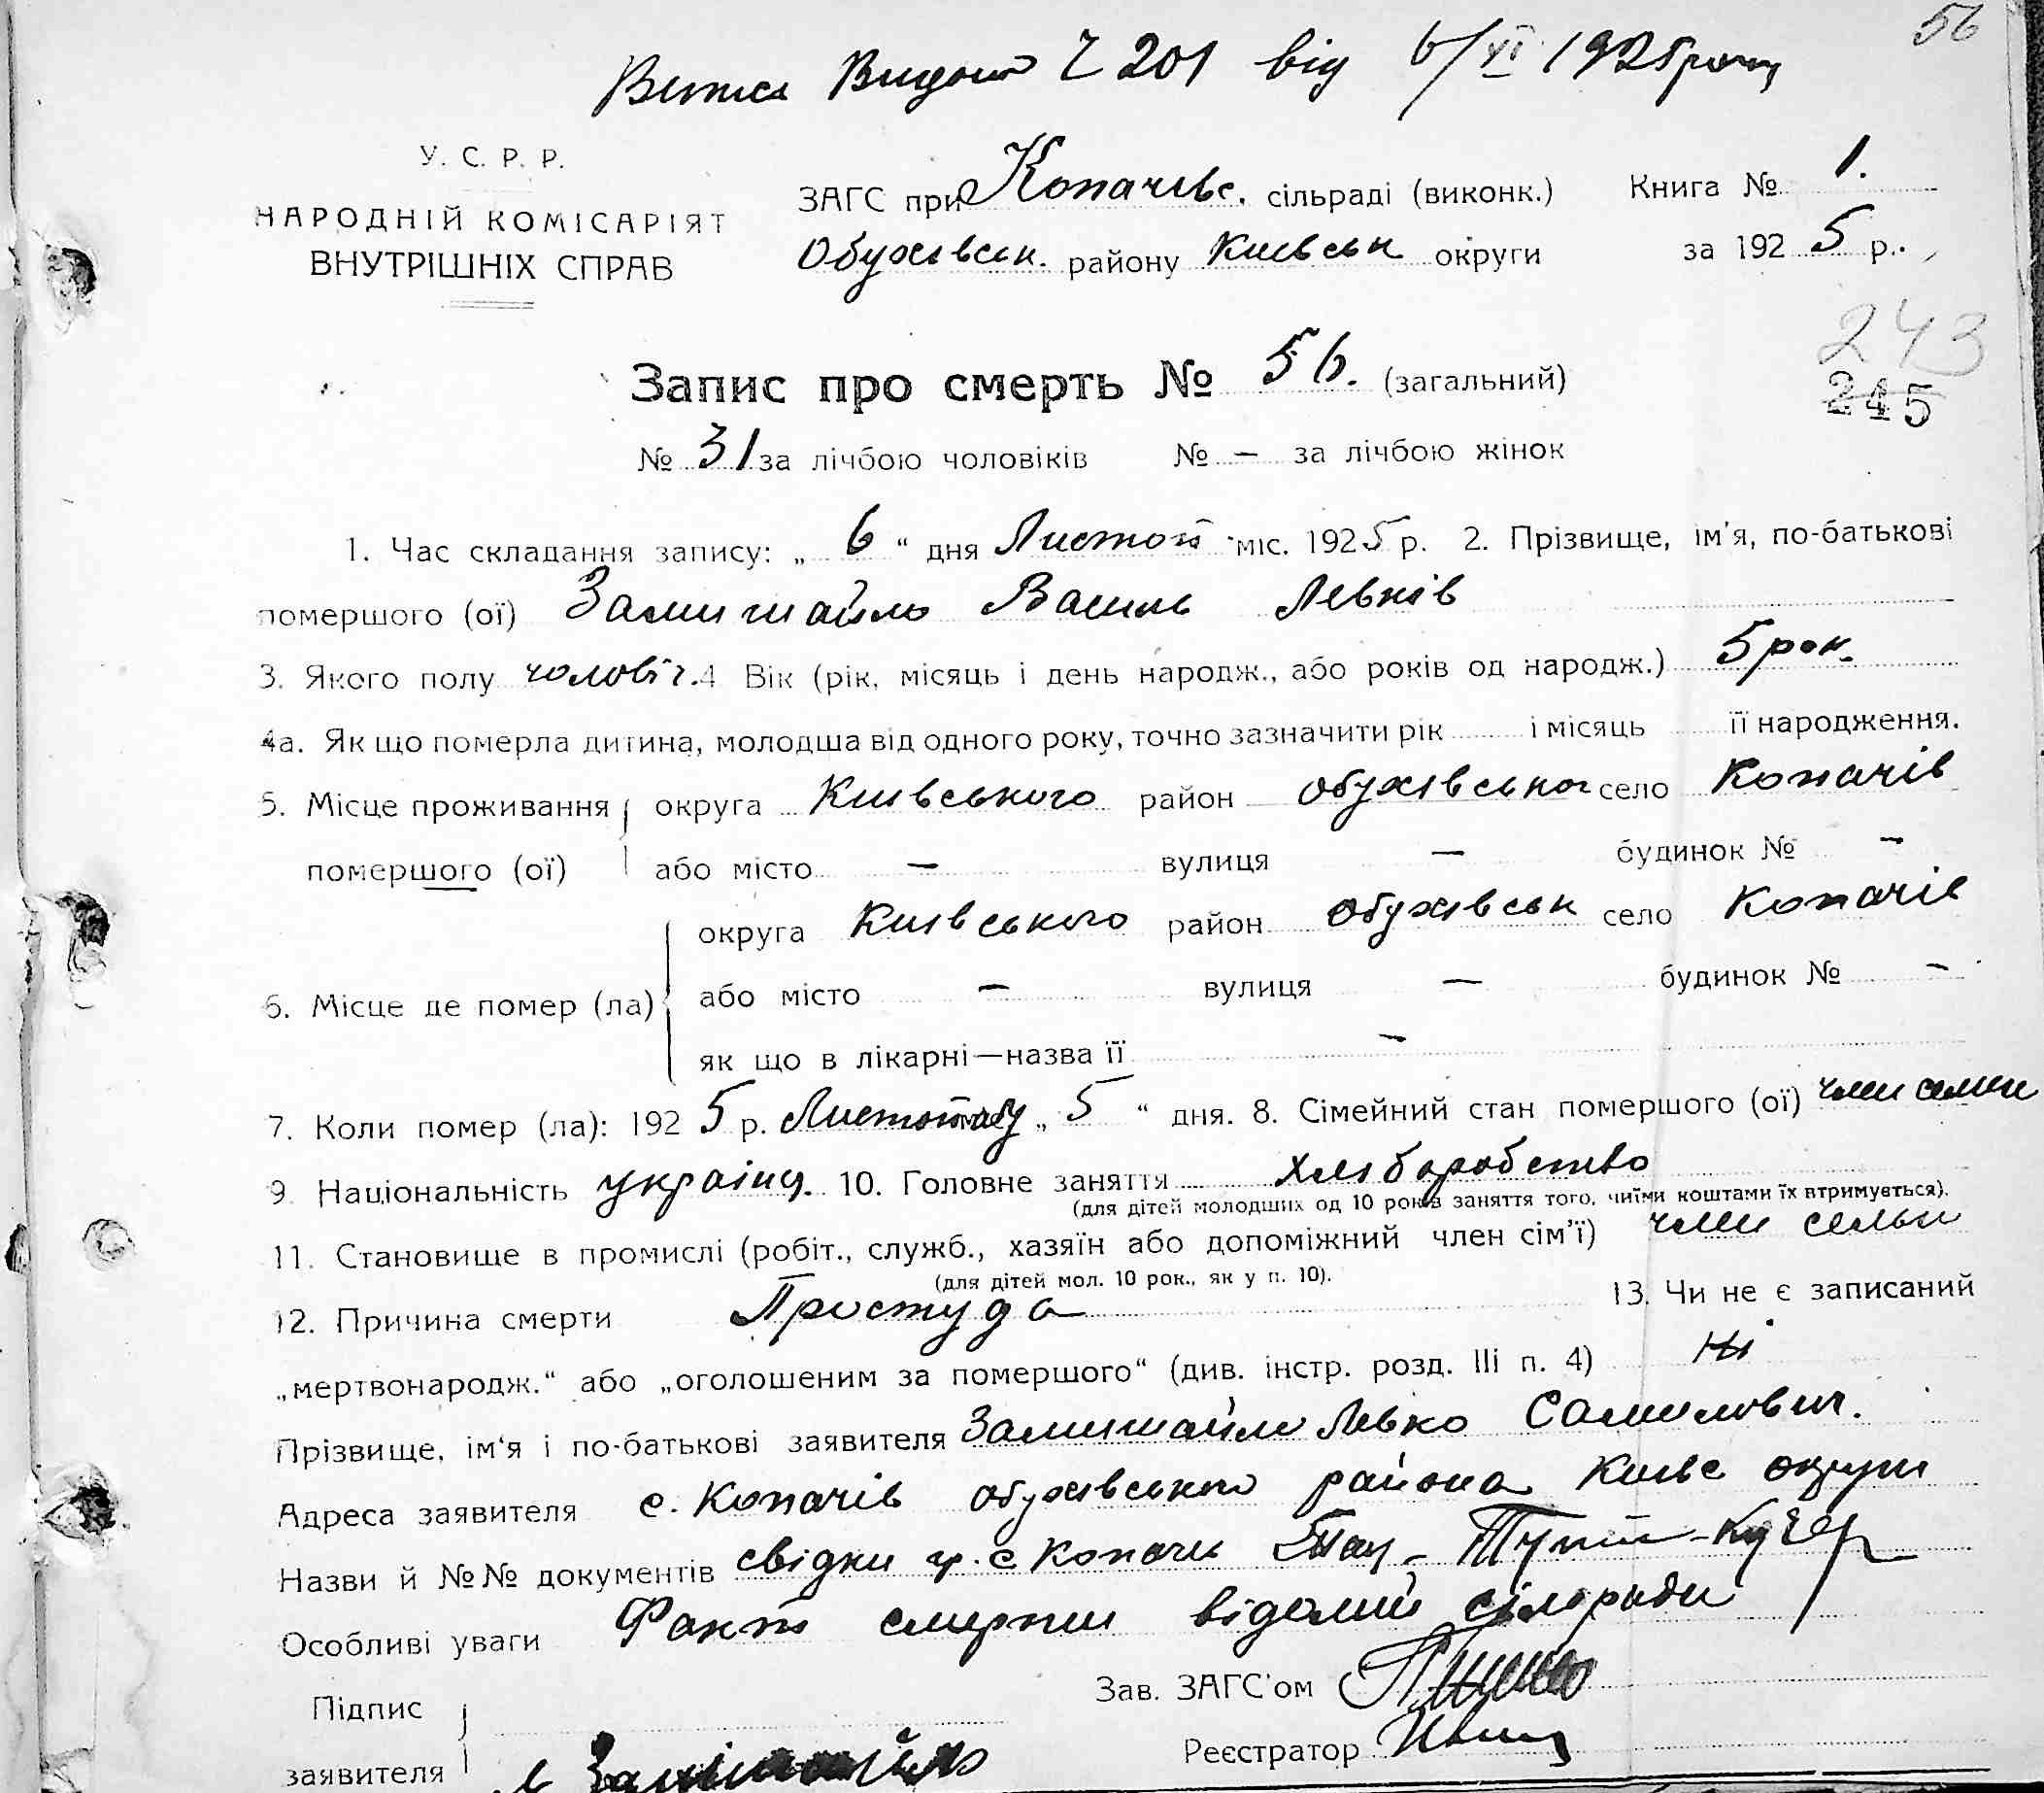 56
Витяг Видано Ч 201 від 6/XI 1925 року
У. С. Р. Р.
НАРОДНІЙ КОМІСАРІЯТ
ВНУТРІШНІХ СПРАВ
ЗАГС при Копачівс. сільраді (виконк.) Книга № 1.
Обухівськ. району Київськ округи за 192 5 р.
243
245
Запис про смерть № 56. (загальний)
№ 31 за лічбою чоловіків № — за лічбою жінок
1. Час складання запису: „ 6 “ дня Листоп міс. 1925 р. 2. Прізвище, ім'я, по-батькові
помершого (ої) Замишайло Василь Левків
3. Якого полу чоловіч. 4 Вік (рік, місяць і день народж., або років од народж.) 5 рок.
4а. Як що померла дитина, молодша від одного року, точно зазначити рік і місяць її народження.
5. Місце проживання округа Київського район Обухівськог село Копачів
помершого (ої) або місто — вулиця — будинок № —
округа Київського район Обухівськ село Копачів
6. Місце де помер (ла) або місто — вулиця — будинок № —
як що в лікарні—назва її —
7. Коли помер (ла): 192 5 р. Листопаду „ 5 “ дня. 8. Сімейний стан помершого (ої) член семьи
9. Національність україн. 10. Головне заняття хліборобство
(для дітей молодших од 10 років заняття того, чиїми коштами їх втримується).
11. Становище в промислі (робіт., служб., хазяїн або допоміжний член сім'ї) член семьи
(для дітей мол. 10 рок., як у п. 10).
12. Причина смерти Простуда 13. Чи не є записаний
„мертвонародж.“ або „оголошеним за помершого“ (див. інстр. розд. III п. 4) Ні
Прізвище, ім'я і по-батькові заявителя Замишайло Левко Самилович.
Адреса заявителя с. Копачів обухівського района Київс округи
Назви й №№ документів свідки гр. с Копачів
Особливі уваги Факт смерти відомий сільради
Зав. ЗАГС'ом
Підпис
Реєстратор
заявителя Л Замішайло